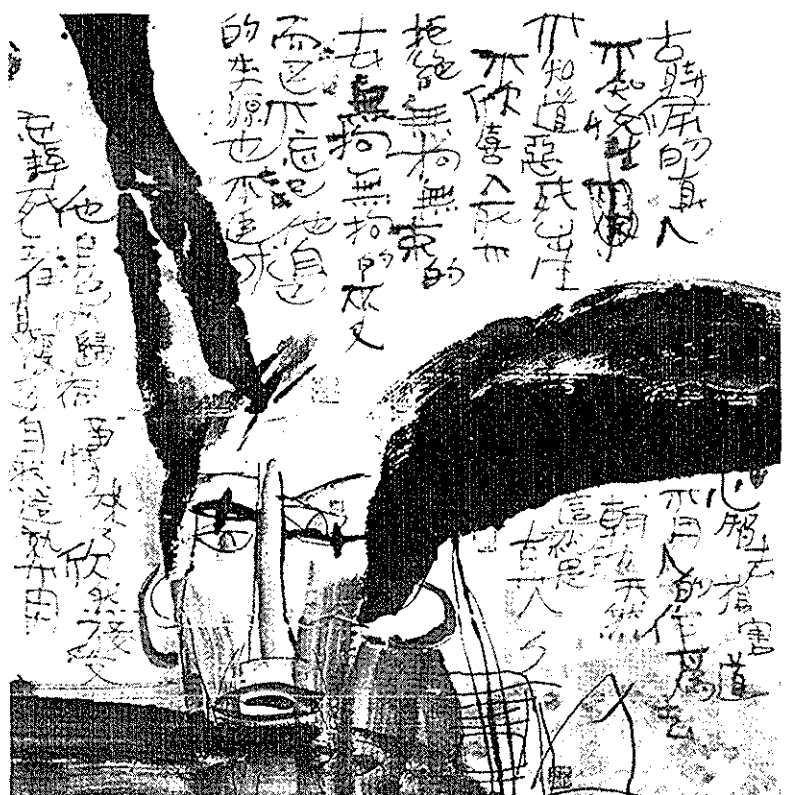 古時候的真人
不知悅生
不知道惡死出生
不欣喜入死也不
拒絕無拘無束的
去無拘無拘的來
而已不忘記他自己
的本源也不追求
他自己的歸宿事情來了欣然接受
忘掉死生任復於自然這就是用
心智去損害道
不用人的作為去
輔助天然
這就是
真人